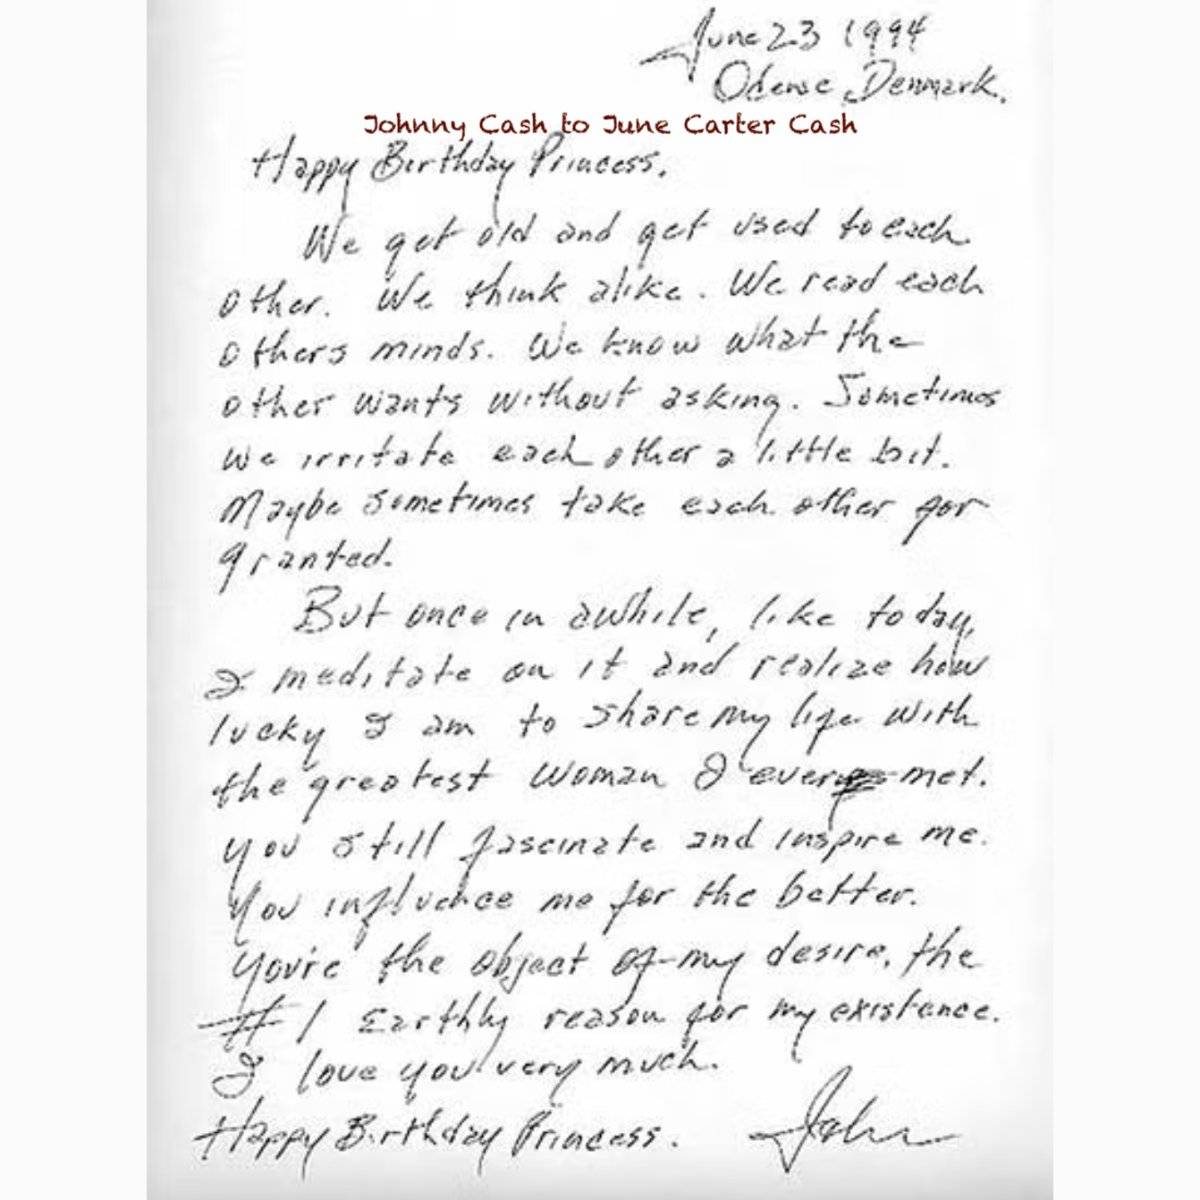 June 23 1994
Odense, Denmark.
Johnny Cash to June Carter Cash
Happy Birthday Princess.
We get old and get used to each
other. We think alike. We read each
others minds. We know what the
other wants without asking. Sometimes
we irritate each other a little bit.
Maybe sometimes take each other for
granted.
But once in awhile, like today,
I meditate on it and realize how
lucky I am to share my life with
the greatest woman I ever met.
You still fascinate and inspire me.
You influence me for the better.
You're the object of my desire, the
#1 Earthly reason for my existence.
I love you very much.
Happy Birthday Princess.
John